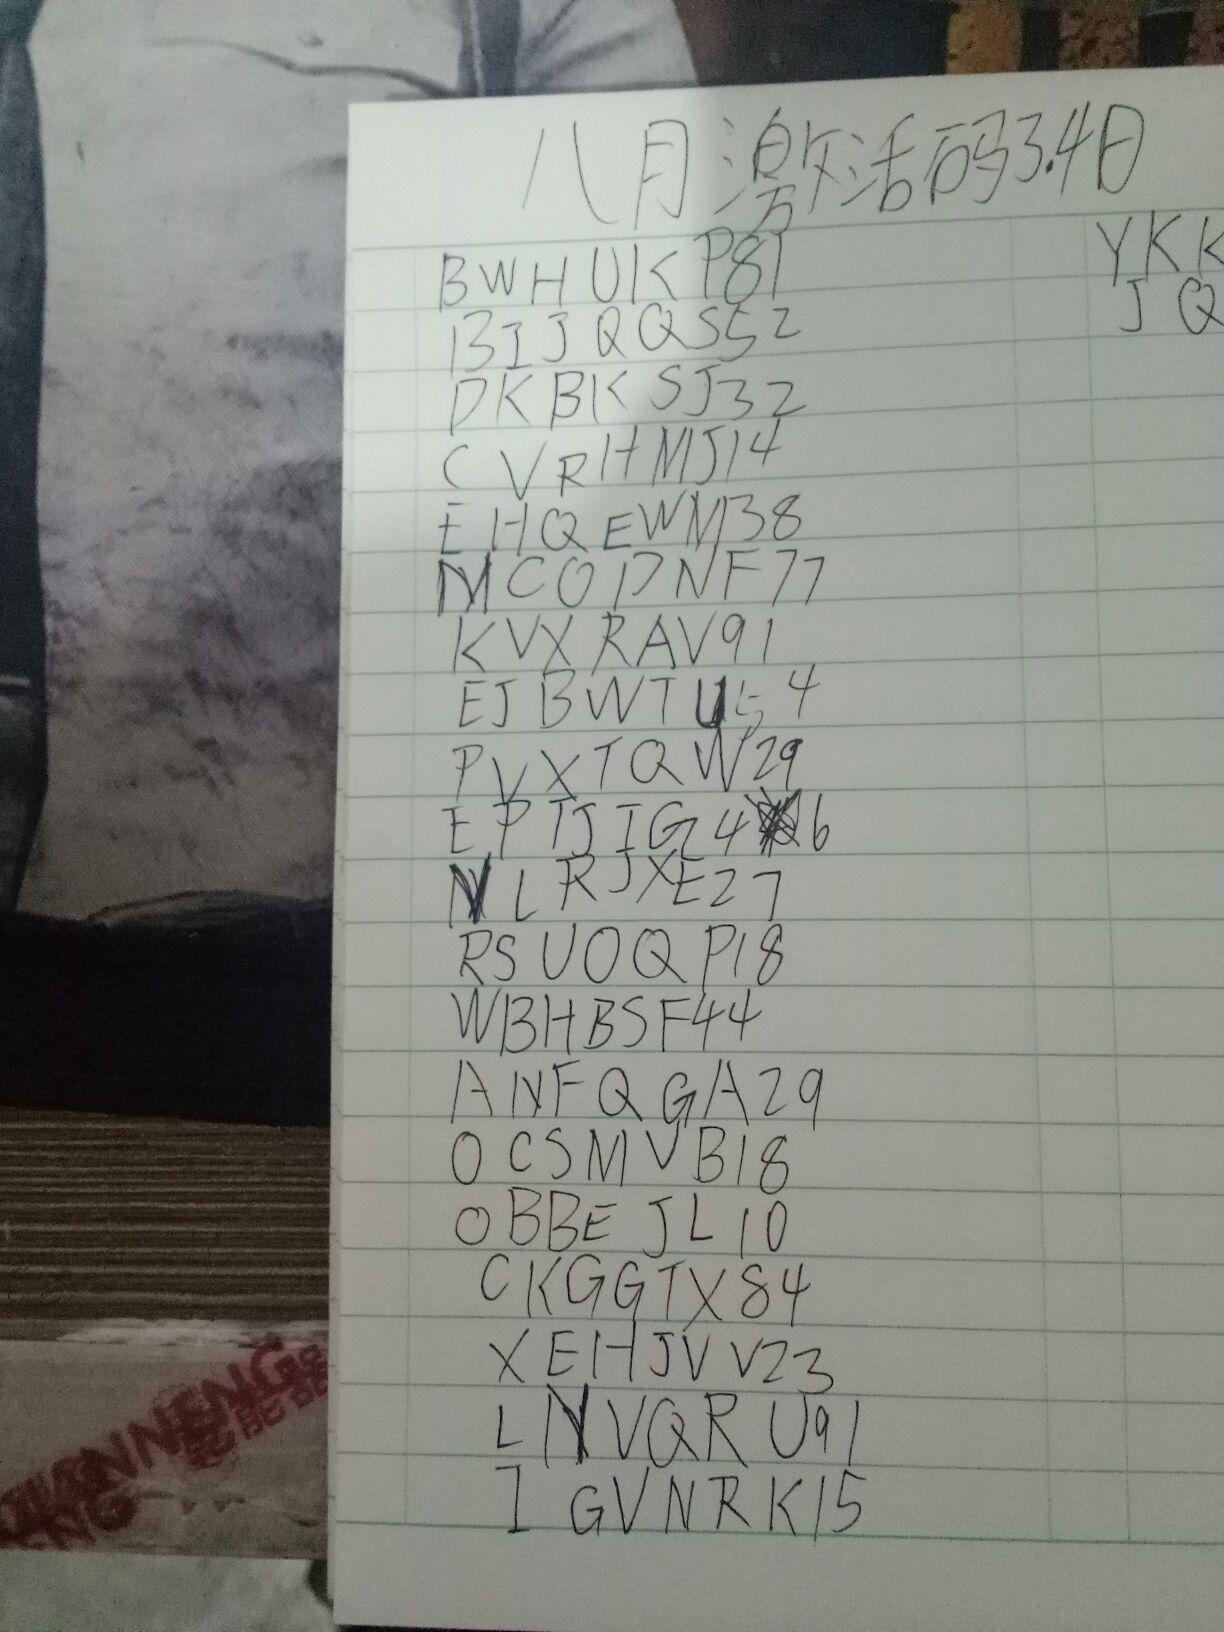 八月激活码3.4日
BWHUKP81
BIJQQS52
DKBKSJ32
CVRHMJ14
EHQEWM38
MCOPNF77
KVXRAV91
EJBWTU54
PVXTQW29
EPTJIG46
NLRJXE27
RSUOQP18
WBHBSF44
ANFQGA29
OCSMVB18
OBBEJL10
CKGGTX84
XEHJVV23
LNVQRU91
IGVNRK15
YKK
JQ